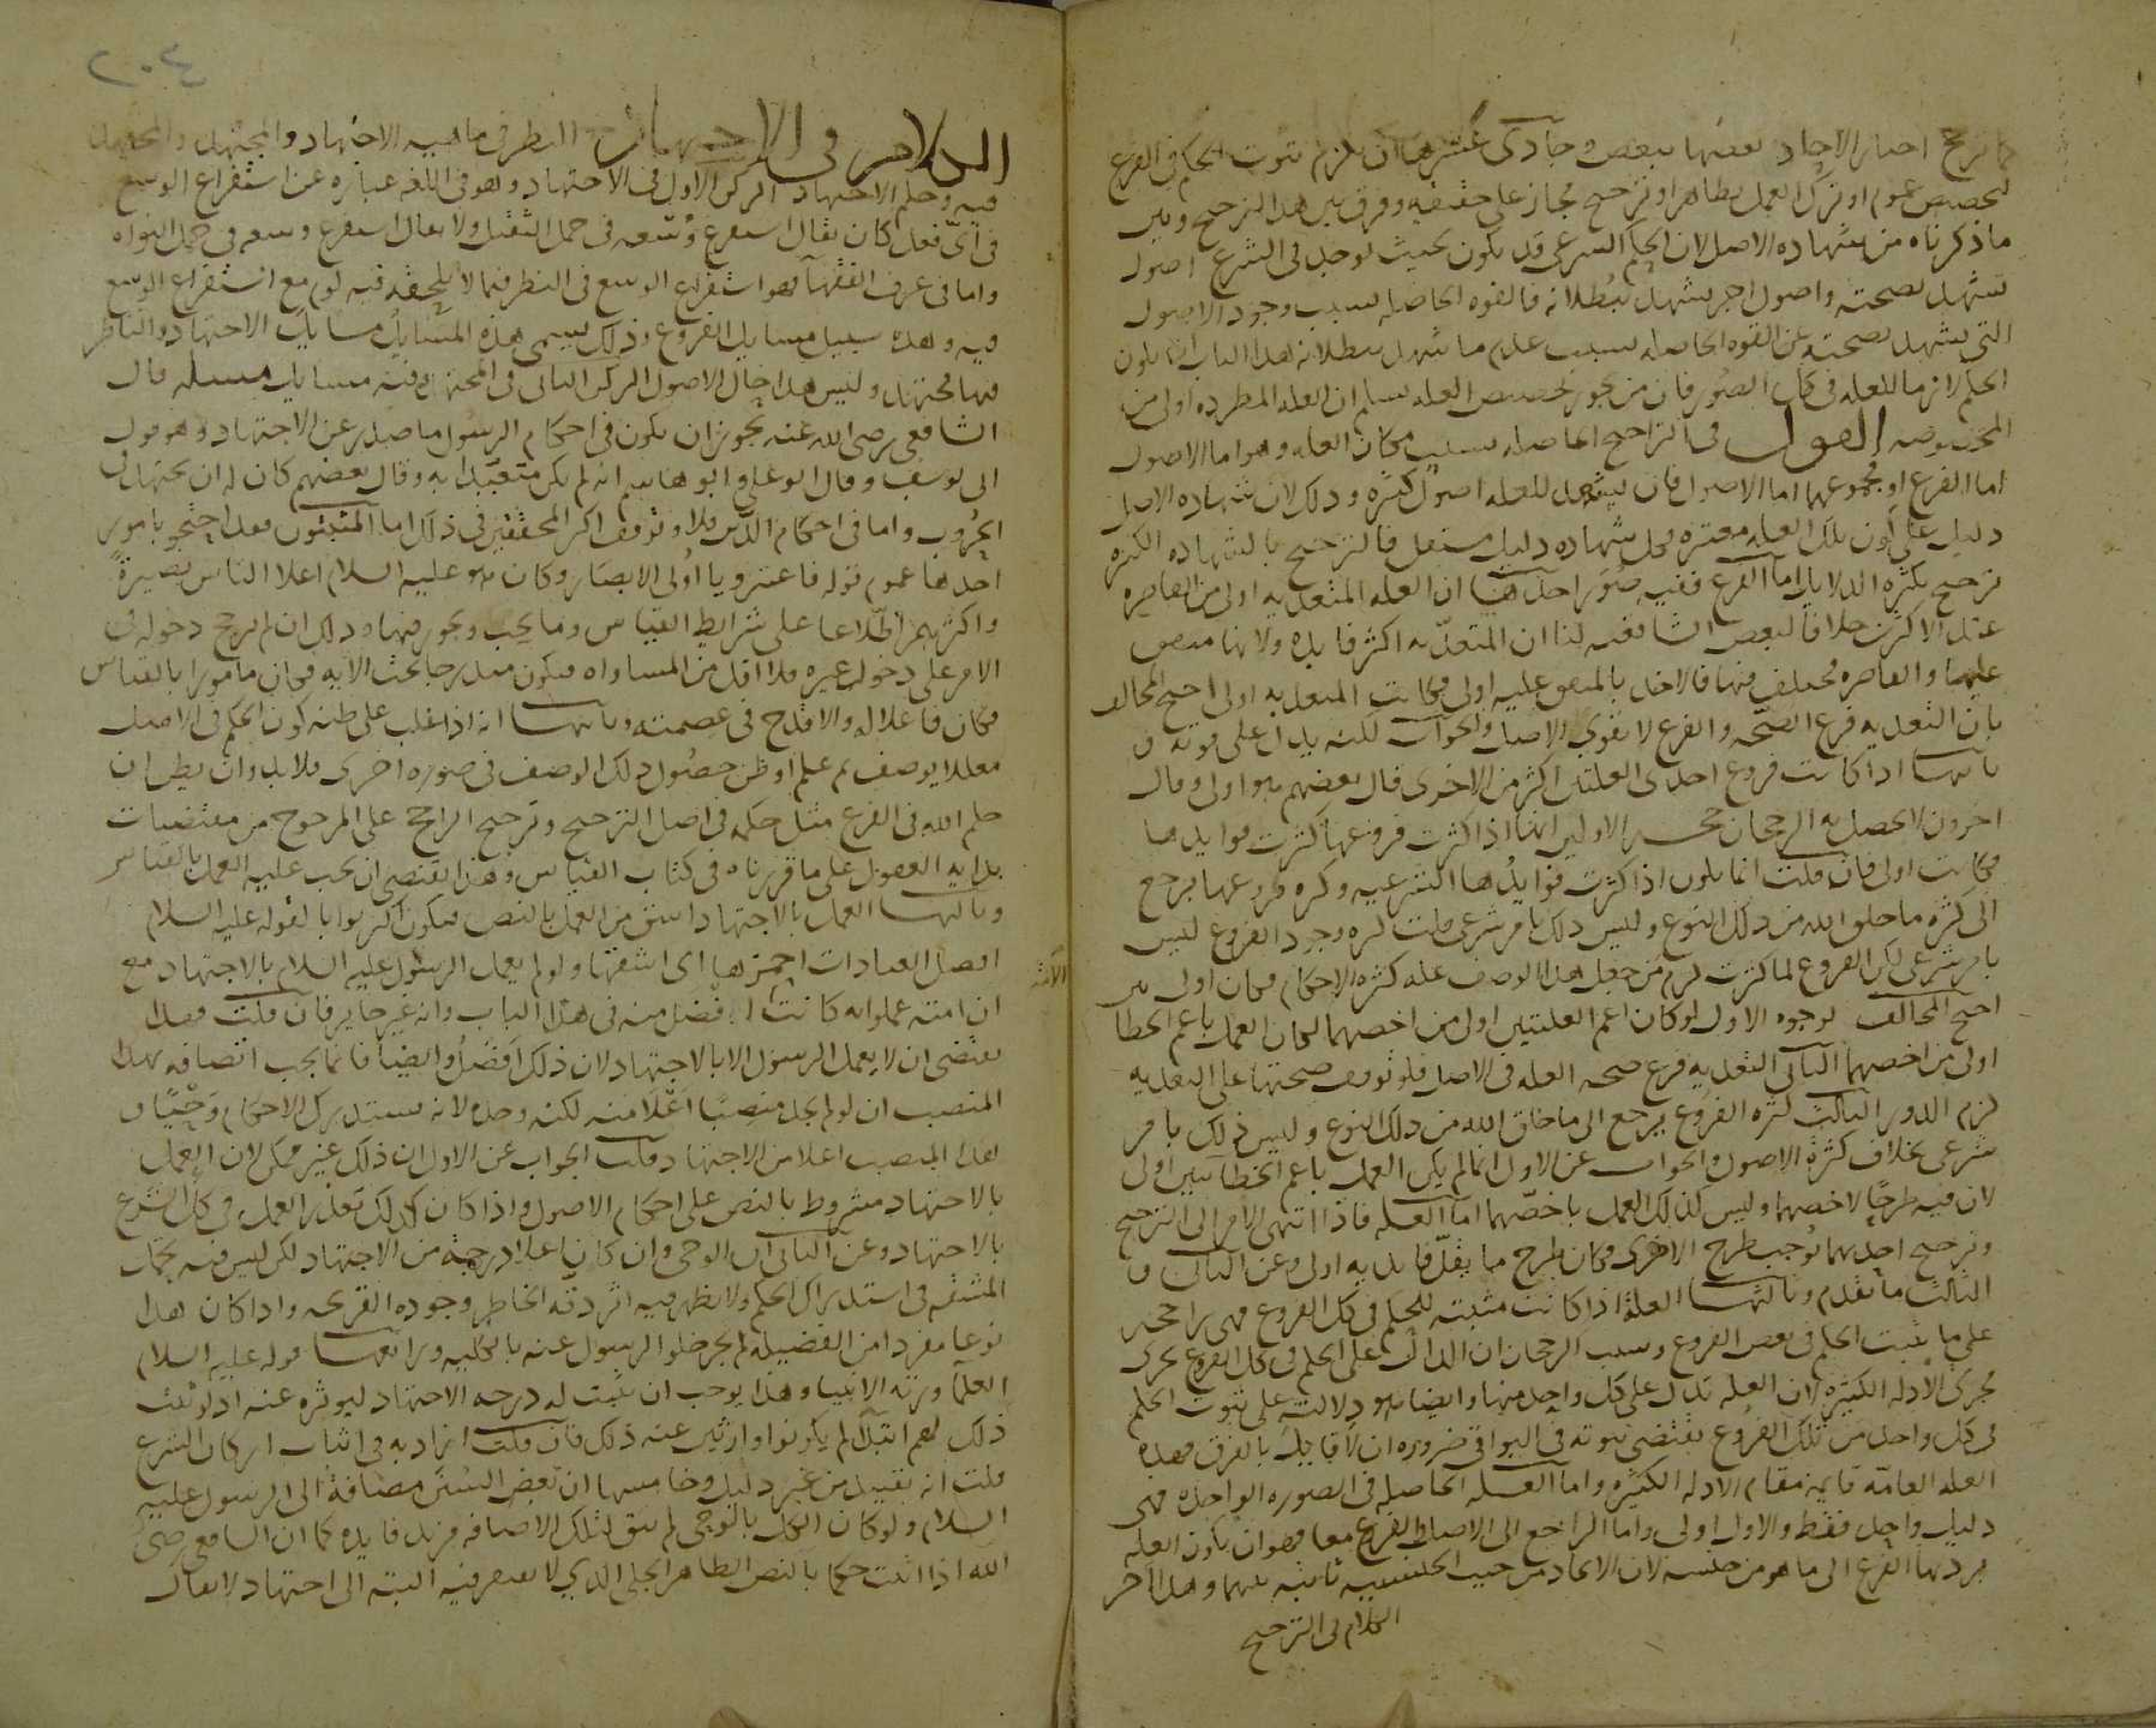 كما ترجح اخبار الاحاد بعضها ببعض وحادى عشرها ان يلزم ثبوت الحكم فى الفرع
تخصيص عموم او ترك العمل بظاهر او ترجيح مجاز على حقيقه وفرق بين هذا الترجيح وبين
ما ذكرناه من شهاده الاصل لان الحكم الشرعى قد يكون بحيث يوجد فى الشرع اصول
تشهد بصحته واصول اخر تشهد ببطلانه فالقوه الحاصله بسبب وجود الاصول
التى تشهد بصحته غير القوه الحاصله بسبب عدم ما يشهد ببطلانه هذا الباب ان يكون
الحكم لازما للعله فى كل الصور فان من يجوز تخصيص العله يسلم ان العله المطرده اولى من
المخصوصه القول فى التراجيح الحاصله بسبب مكان العله وهو اما الاصول
اما الفرع او مجموعهما اما الاصول فان يشهد للعله اصول كثيره وذلك لان شهاده الاصل
دليل على كون تلك العله معتبره وكل شهاده دليل مستقل فالترجيح بالشهاده الكثيره
ترجيح بكثره الدلايل اما الفرع ففيه صور احدها ان العله المتعديه اولى من القاصره
عند الاكثرين خلافا لبعض الشافعيه لنا ان المتعديه اكثر فايده ولانها متفق
عليها والقاصره مختلف فيها فالاخذ بالمتفق عليه اولى فكانت المتعديه اولى احتج المخالف
بان التعديه فرع الصحه والفرع لا يقوى الاصل والجواب لكنه يدل على قوته و
ثانيها اذا كانت فروع احدى العلتين اكثر من الاخرى قال بعضهم هو اولى وقال
اخرون لا يحصل به الرجحان حجه الاولين انها اذا كثرت فروعها كثرت فوايدها
فكانت اولى فان قلت انما يكون اذا كثرت فوايدها الشرعيه وكثره فروعها يرجع
الى كثره ما خلق الله من ذلك النوع وليس ذلك بامر شرعى قلت كثره وجود الفروع ليس
بامر شرعى لكن الفروع لما كثرت لزم من جعل هذا الوصف عله كثره الاحكام فكان اولى من
احتج المخالف بوجوه الاول لو كان اعم العلتين اولى من اخصهما لكان العمل باعم الخطا
اولى من اخصهما الثانى التعديه فرع صحه العله فى الاصل فلو توقف صحتها على التعديه
لزم الدور الثالث كثره الفروع يرجع الى ما خلق الله من ذلك النوع وليس ذلك بامر
شرعى بخلاف كثره الاصول والجواب عن الاول انما لم يكن العمل باعم الخطابين اولى
لان فيه طرحا لاخصهما وليس كذلك العمل باخصهما اما العله فاذا انتهى الامر الى الترجيح
وترجيح احديهما يوجب طرح الاخرى فكان طرح ما يقل فايدته اولى وعن الثانى و
الثالث ما تقدم وثالثها العله اذا كانت مثبته للحكم فى كل الفروع فهى راجحه
على ما يثبت الحكم فى بعض الفروع وسبب الرجحان ان الدال على الحكم فى كل الفروع يجرى
مجرى الادله الكثيره لان العله تدل على كل واحد منها وايضا فهو دلالته على ثبوت الحكم
فى كل واحد من تلك الفروع يقتضى ثبوته فى البواقى ضروره ان لا قايل بالفرق فهذه
العله العامه قايمه مقام الادله الكثيره واما العله الحاصله فى الصوره الواحده فهى
دليل واحد فقط والاول اولى واما الراجع الى الاصل والفرع معا فهو ان يكون العله
يرد بها الفرع الى ما هو من جنسه لان الاتحاد من حيث الجنسيه ثابته بينهما وهذا اخر
الكلام فى الترجيح
٢٠٤
الكلام فى الاجتهاد النظر فى ماهيه الاجتهاد والمجتهد والمجتهد
فيه وحكم الاجتهاد الركن الاول فى الاجتهاد وهو فى اللغه عباره عن استفراغ الوسع
فى اى فعل كان يقال استفرغ وسعه فى حمل الثقيل ولا يقال استفرغ وسعه فى حمل النواه
واما فى عرف الفقها فهو استفراغ الوسع فى النظر فيما لا يلحقه فيه لوم مع استفراغ الوسع
فيه وهذه سبيل مسايل الفروع وذلك يسمى هذه المسايل مسايل الاجتهاد والناظر
فيها مجتهد وليس هذا حال الاصول الركن الثانى فى المجتهد وفيه مسايل مسله قال
الشافعى رضى الله عنه يجوز ان يكون فى احكام الرسول ما صدر عن الاجتهاد وهو قول
ابى يوسف وقال ابو على وابو هاشم انه لم يكن متعبدا به وقال بعضهم كان له ان يجتهد فى
الحروب واما فى احكام الدين فلا وتوقف اكثر المحققين فى ذلك اما المثبتون فقد احتجوا بامور
احدها عموم قوله فاعتبروا يا اولى الابصار وكان هو عليه السلام اعلا الناس بصيره
واكثرهم اطلاعا على شرايط القياس وما يجب ويجوز فيها وذلك ان لم يرجح دخوله فى
الامر على دخول غيره فلا اقل من المساواه فيكون مندرجا تحت الايه فكان مامورا بالقياس
فكان فاعلا له والا قدح فى عصمته وثانيها انه اذا غلب على ظنه كون الحكم فى الاصل
معللا بوصف ثم علم او ظن حصول ذلك الوصف فى صوره اخرى فلا بد وان يظن ان
حكم الله فى الفرع مثل حكمه فى اصل الترجيح وترجيح الراجح على المرجوح من مقتضيات
بدايه العقول على ما قررناه فى كتاب القياس وهذا يقتضى ان يجب عليه العمل بالقياس
وثالثها العمل بالاجتهاد اشق من العمل بالنص فيكون اكثر ثوابا لقوله عليه السلام
افضل العبادات احمزها اى اشقها ولو لم يعمل الرسول عليه السلام بالاجتهاد مع
ان امته عملوا به كانت الامه افضل منه فى هذا الباب وانه غير جايز فان قلت فهذا
يقتضى ان لا يعمل الرسول الا بالاجتهاد لان ذلك افضل وايضا فانما يجب اتصافه بهذا
المنصب ان لو لم يجد منصبا اعلا منه لكنه وجده لانه يستدرك الاحكام وحيا و
هذا المنصب اعلا من الاجتهاد قلت الجواب عن الاول ان ذلك غير ممكن لان العمل
بالاجتهاد مشروط بالنص على احكام الاصول واذا كان كذلك تعذر العمل فى كل الشرع
بالاجتهاد وعن الثانى ان الوحى وان كان اعلا درجه من الاجتهاد لكن ليس فيه تحمل
المشقه فى استدراك الحكم ولا يظهر فيه اثر دقه الخاطر وجوده القريحه واذا كان هذا
نوعا مفردا من الفضيله لم يجز خلو الرسول عنه بالكليه ورابعها قوله عليه السلام
العلما ورثه الانبيا وهذا يوجب ان يثبت له درجه الاجتهاد ليورثه عنه اذ لو ثبت
ذلك لهم ابتدا لم يكونوا وارثين عنه ذلك فان قلت اراد به فى اثبات اركان الشرع
قلت انه تقييد من غير دليل وخامسها ان بعض السنن مضافه الى الرسول عليه
السلام ولو كان الكل بالوحى لم يبق لتلك الاضافه مزيد فايده كما ان الشافعى رضى
الله اذا اثبت حكما بالنص الظاهر الجلى الذى لا يفتقر فيه البته الى اجتهاد لا يقال